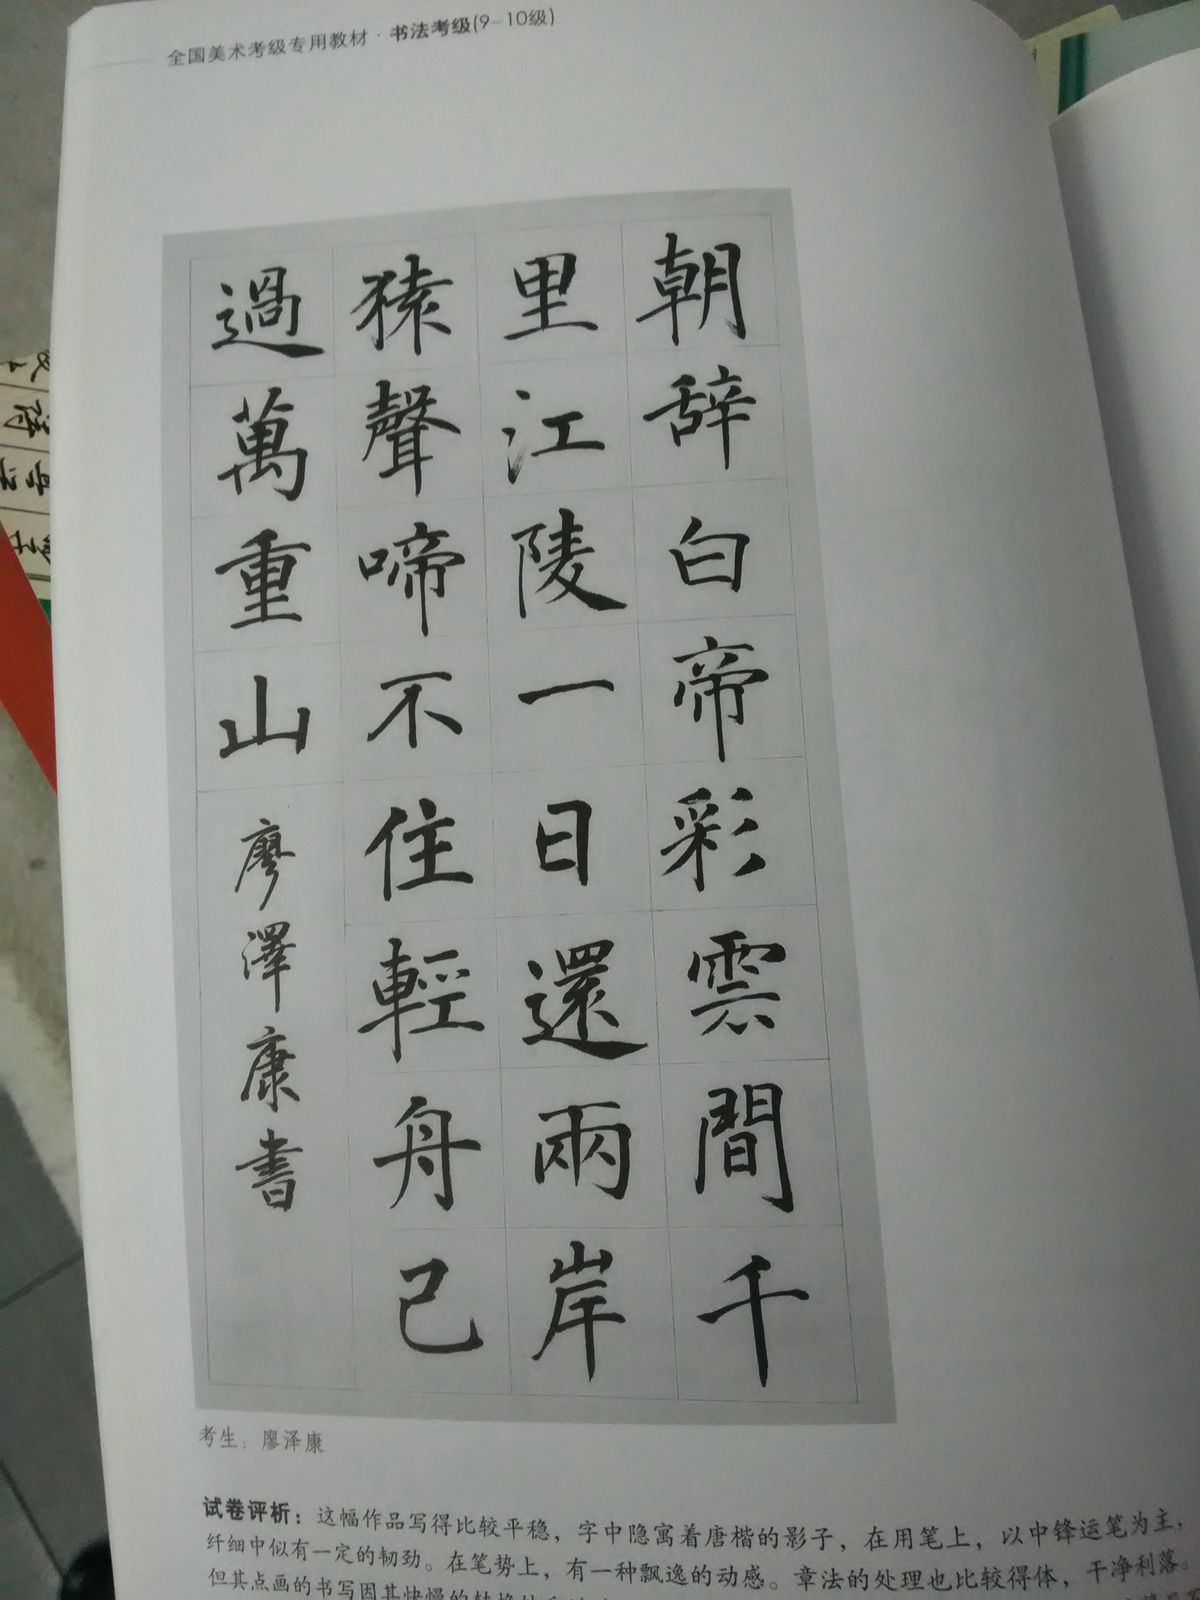 全国美术考级专用教材·书法考级(9-10级)
朝辞白帝彩雲間千
里江陵一日還兩岸
猿聲啼不住輕舟已
過萬重山
廖澤康書
考生：廖泽康
试卷评析：这幅作品写得比较平稳，字中隐寓着唐楷的影子，在用笔上，以中锋运笔为主，
纤细中似有一定的韧劲。在笔势上，有一种飘逸的动感。章法的处理也比较得体，干净利落。
但其点画的书写因其快慢的转换